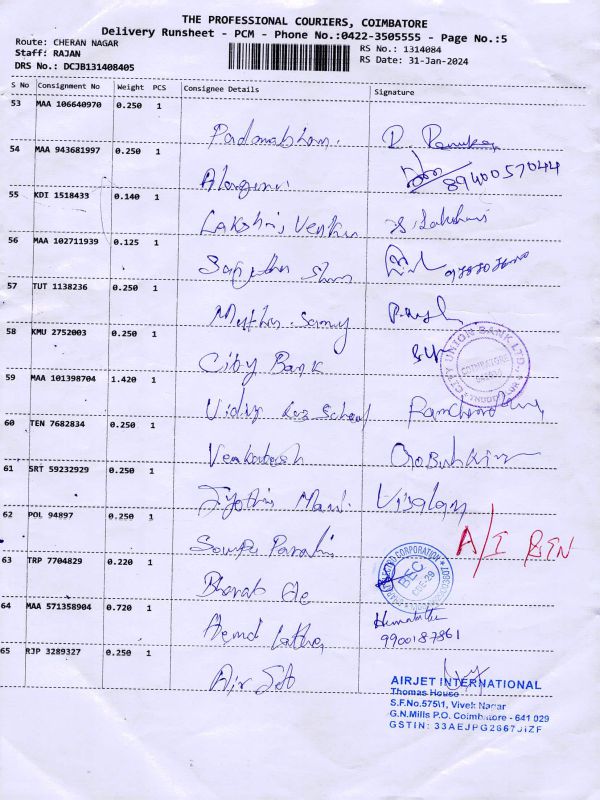 THE PROFESSIONAL COURIERS, COIMBATORE
Delivery Runsheet - PCM - Phone No.:0422-3505555 - Page No.:5
Route: CHERAN NAGAR
Staff: RAJAN
DRS No.: DCJB131408405
RS No.: 1314084
RS Date: 31-Jan-2024
S No Consignment No Weight PCS Consignee Details Signature
53 MAA 106640970 0.250 1
Padamabham.
54 MAA 943681997 0.250 1
8940057044
55 KDI 1518433 0.140 1
Lakshmi Venku S. Lakshmi
56 MAA 102711939 0.125 1
57 TUT 1138236 0.250 1
Muthu Samy
58 KMU 2752003 0.250 1
City Bank
CITY UNION BANK LTD.
COIMBATORE
59 MAA 101398704 1.420 1
Vidya School
60 TEN 7682834 0.250 1
Venkatesh
61 SRT 59232929 0.250 1
Jyothi Mani Visalam
62 POL 94897 0.250 1
A/I
63 TRP 7704829 0.220 1
Bharat
CORPORATION
64 MAA 571358904 0.720 1
Hemalatha
9900187861
65 RJP 3289327 0.250 1
Air
AIRJET INTERNATIONAL
Thomas House
S.F.No.575\1, Vivek Nagar
G.N.Mills P.O. Coimbatore - 641 029
GSTIN: 33AEJPG2667J1ZF